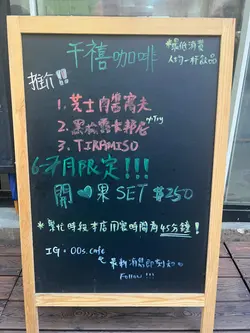 千禧咖啡
*最低消費
人均一杯飲品
推介!!!
1. 芝士肉醬窩夫
2. 黑松露卡邦尼 *Try
3. TIRAMISO
6-7月限定!!!
開♥果 SET $250
*繁忙時段本店用餐時間有45分鐘!
IG: 00s.cafe
最新消息即刻知
Follow!!!